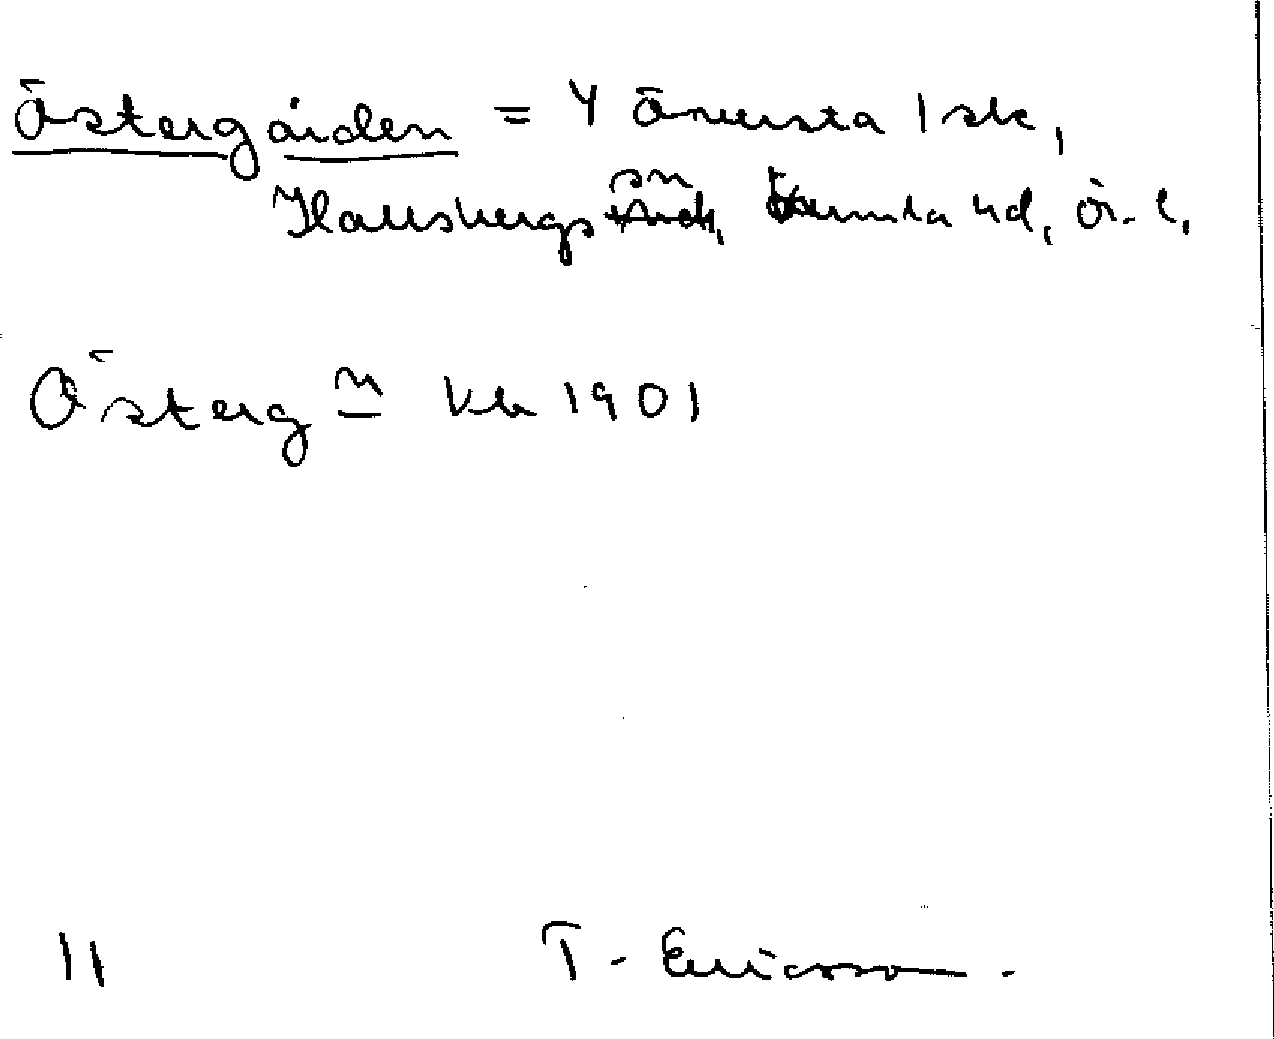 Östergården = Y Öneversta 1 sk,
Hallsbergs sn, Kumla hd, Ör. l.
Österg n Kb 1901
11 T. Ericsson.